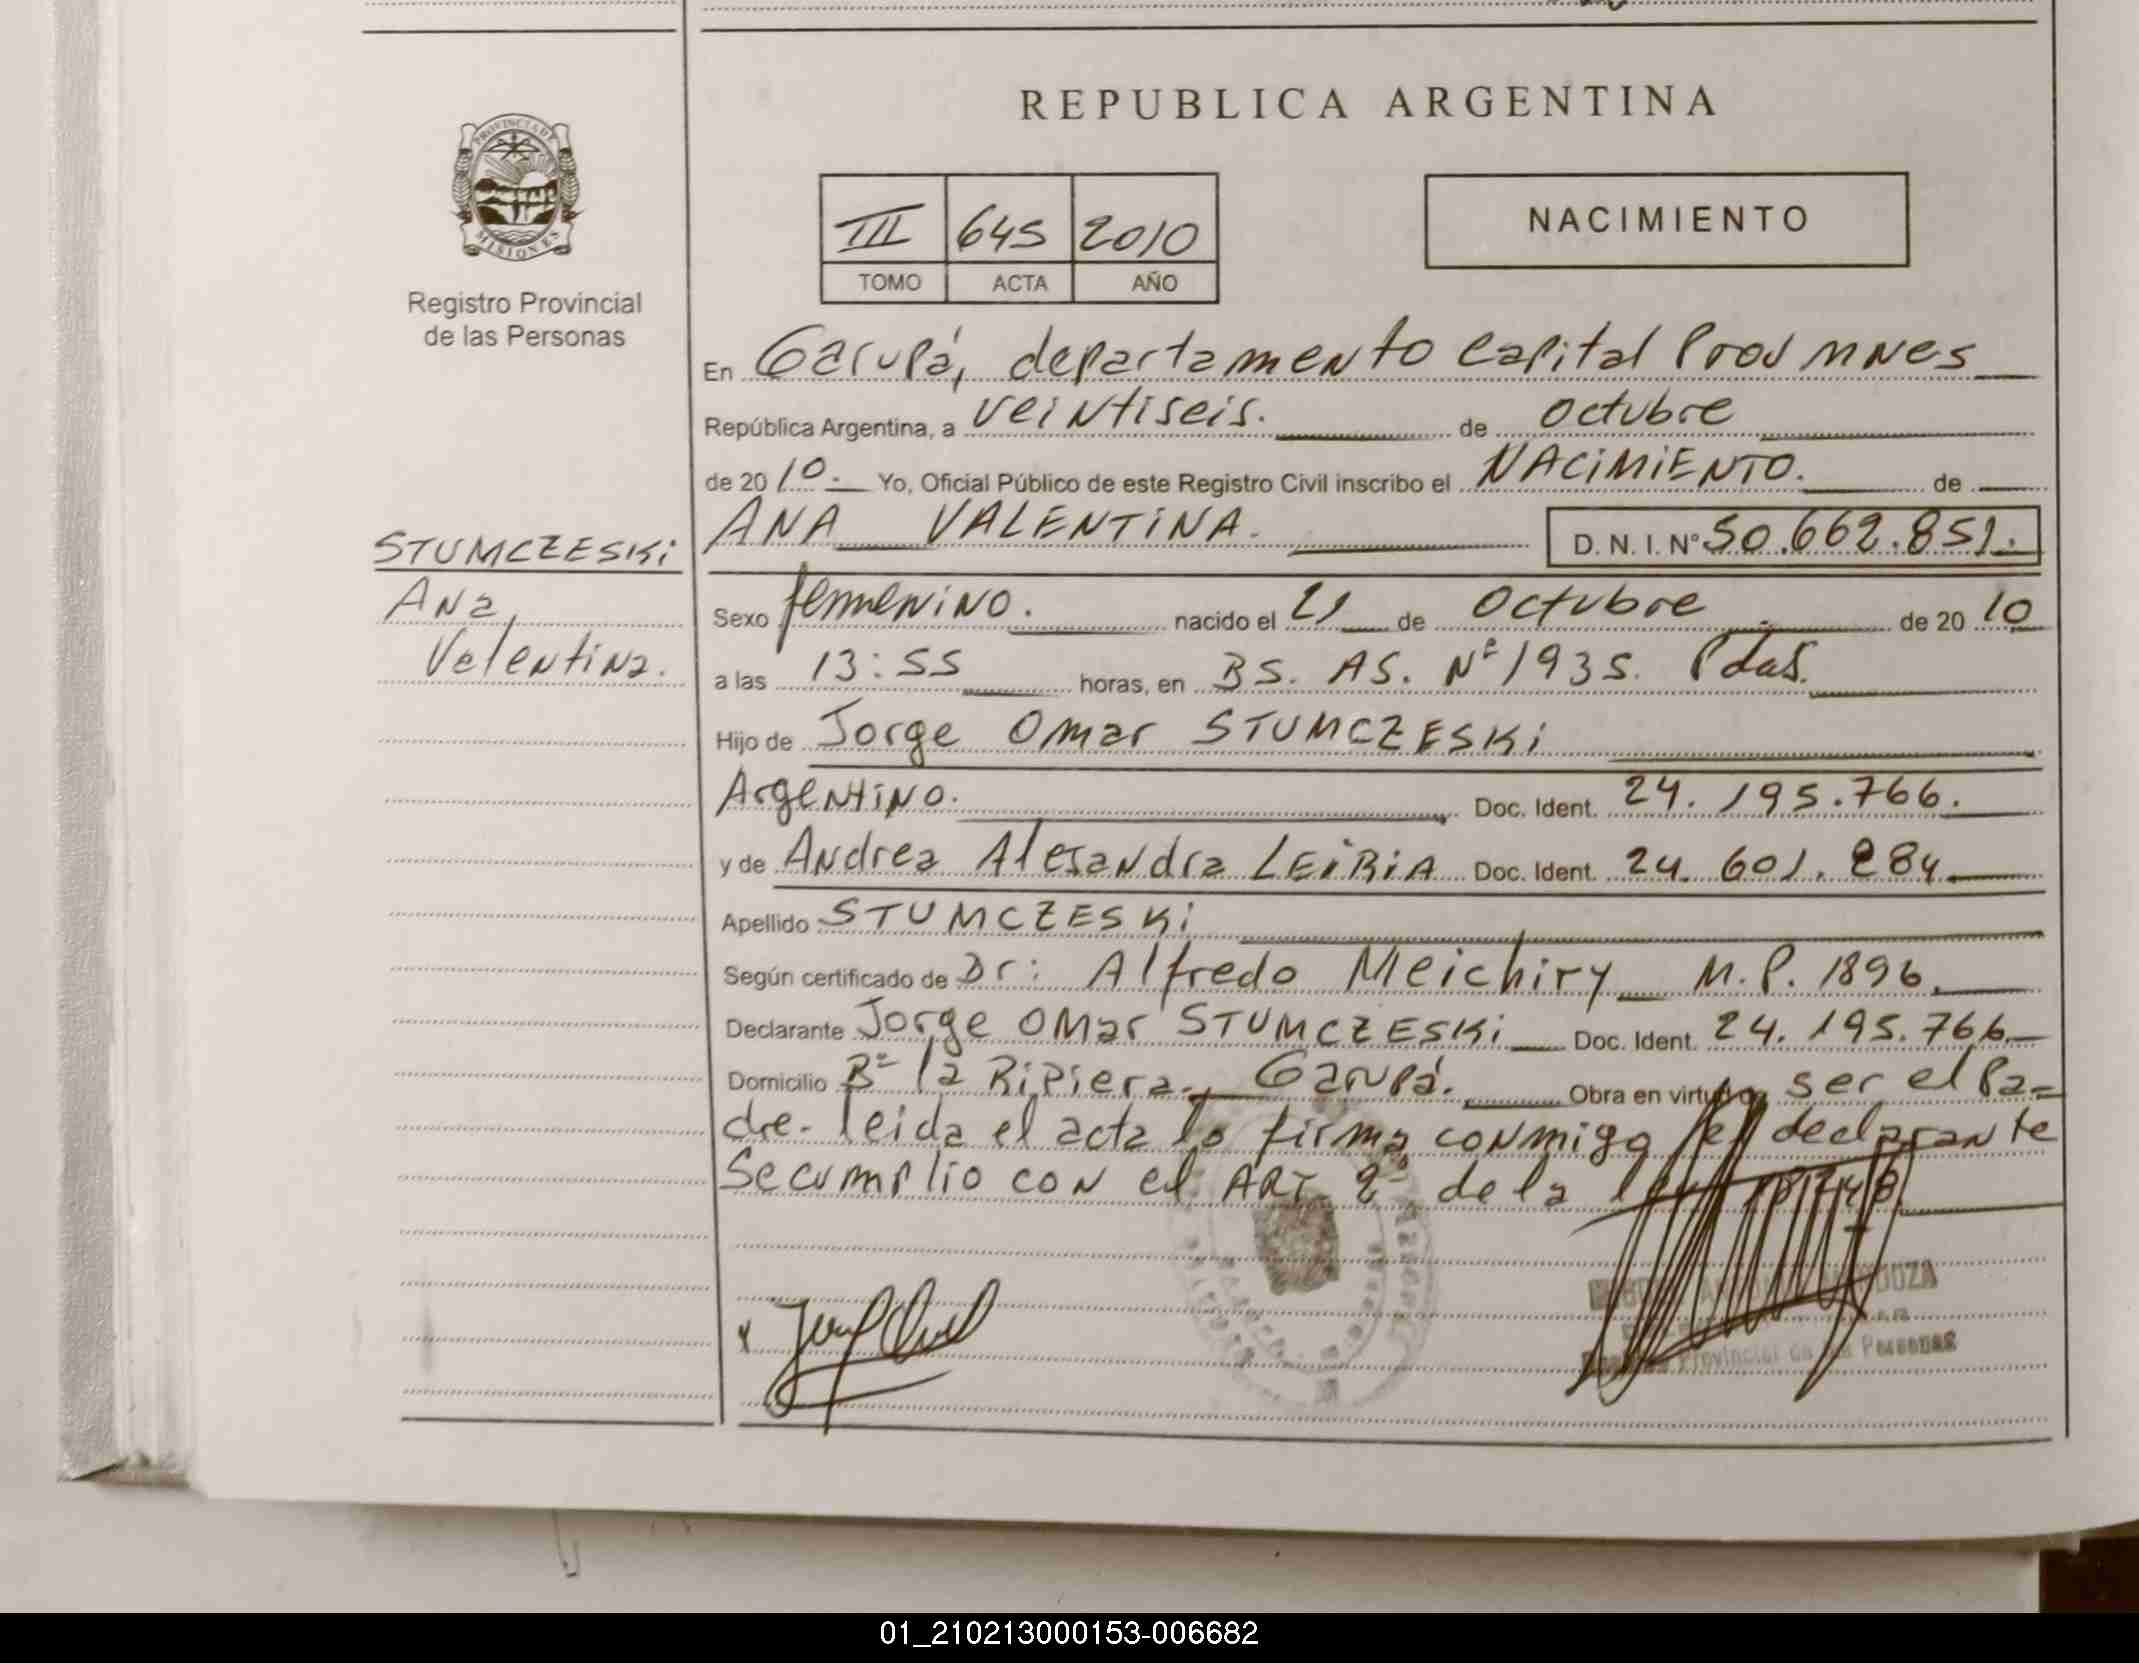 REPUBLICA ARGENTINA
PROVINCIA DE MISIONES
Registro Provincial
de las Personas
III 645 2010
TOMO ACTA AÑO
NACIMIENTO
En Garupá, departamento Capital Prov Mnes
República Argentina, a veintiseis. de octubre
de 2010. Yo, Oficial Público de este Registro Civil inscribo el NACIMIENTO. de
STUMCZESKi
Ana
Valentina.
ANA VALENTINA. D. N. I. N° 50.662.851.
Sexo femenino. nacido el 21 de Octubre de 2010
a las 13:55 horas, en BS. AS. Nº 1935. Pdas.
Hijo de Jorge Omar STUMCZESKi
Argentino. Doc. Ident. 24.195.766.
y de Andrea Alejandra LEiRiA Doc. Ident. 24.601.284
Apellido STUMCZESKi
Según certificado de Dr: Alfredo Meichiry M.P. 1896.
Declarante Jorge Omar STUMCZESKi Doc. Ident. 24.195.766
Domicilio Bº la Ripiera, Garupá. Obra en virtud de ser el Pa-
dre- leida el acta la firma conmigo el declarante
Se cumplio con el ART 2º de la ley
MENDOZA
Registro Provincial de las Personas
01_210213000153-006682